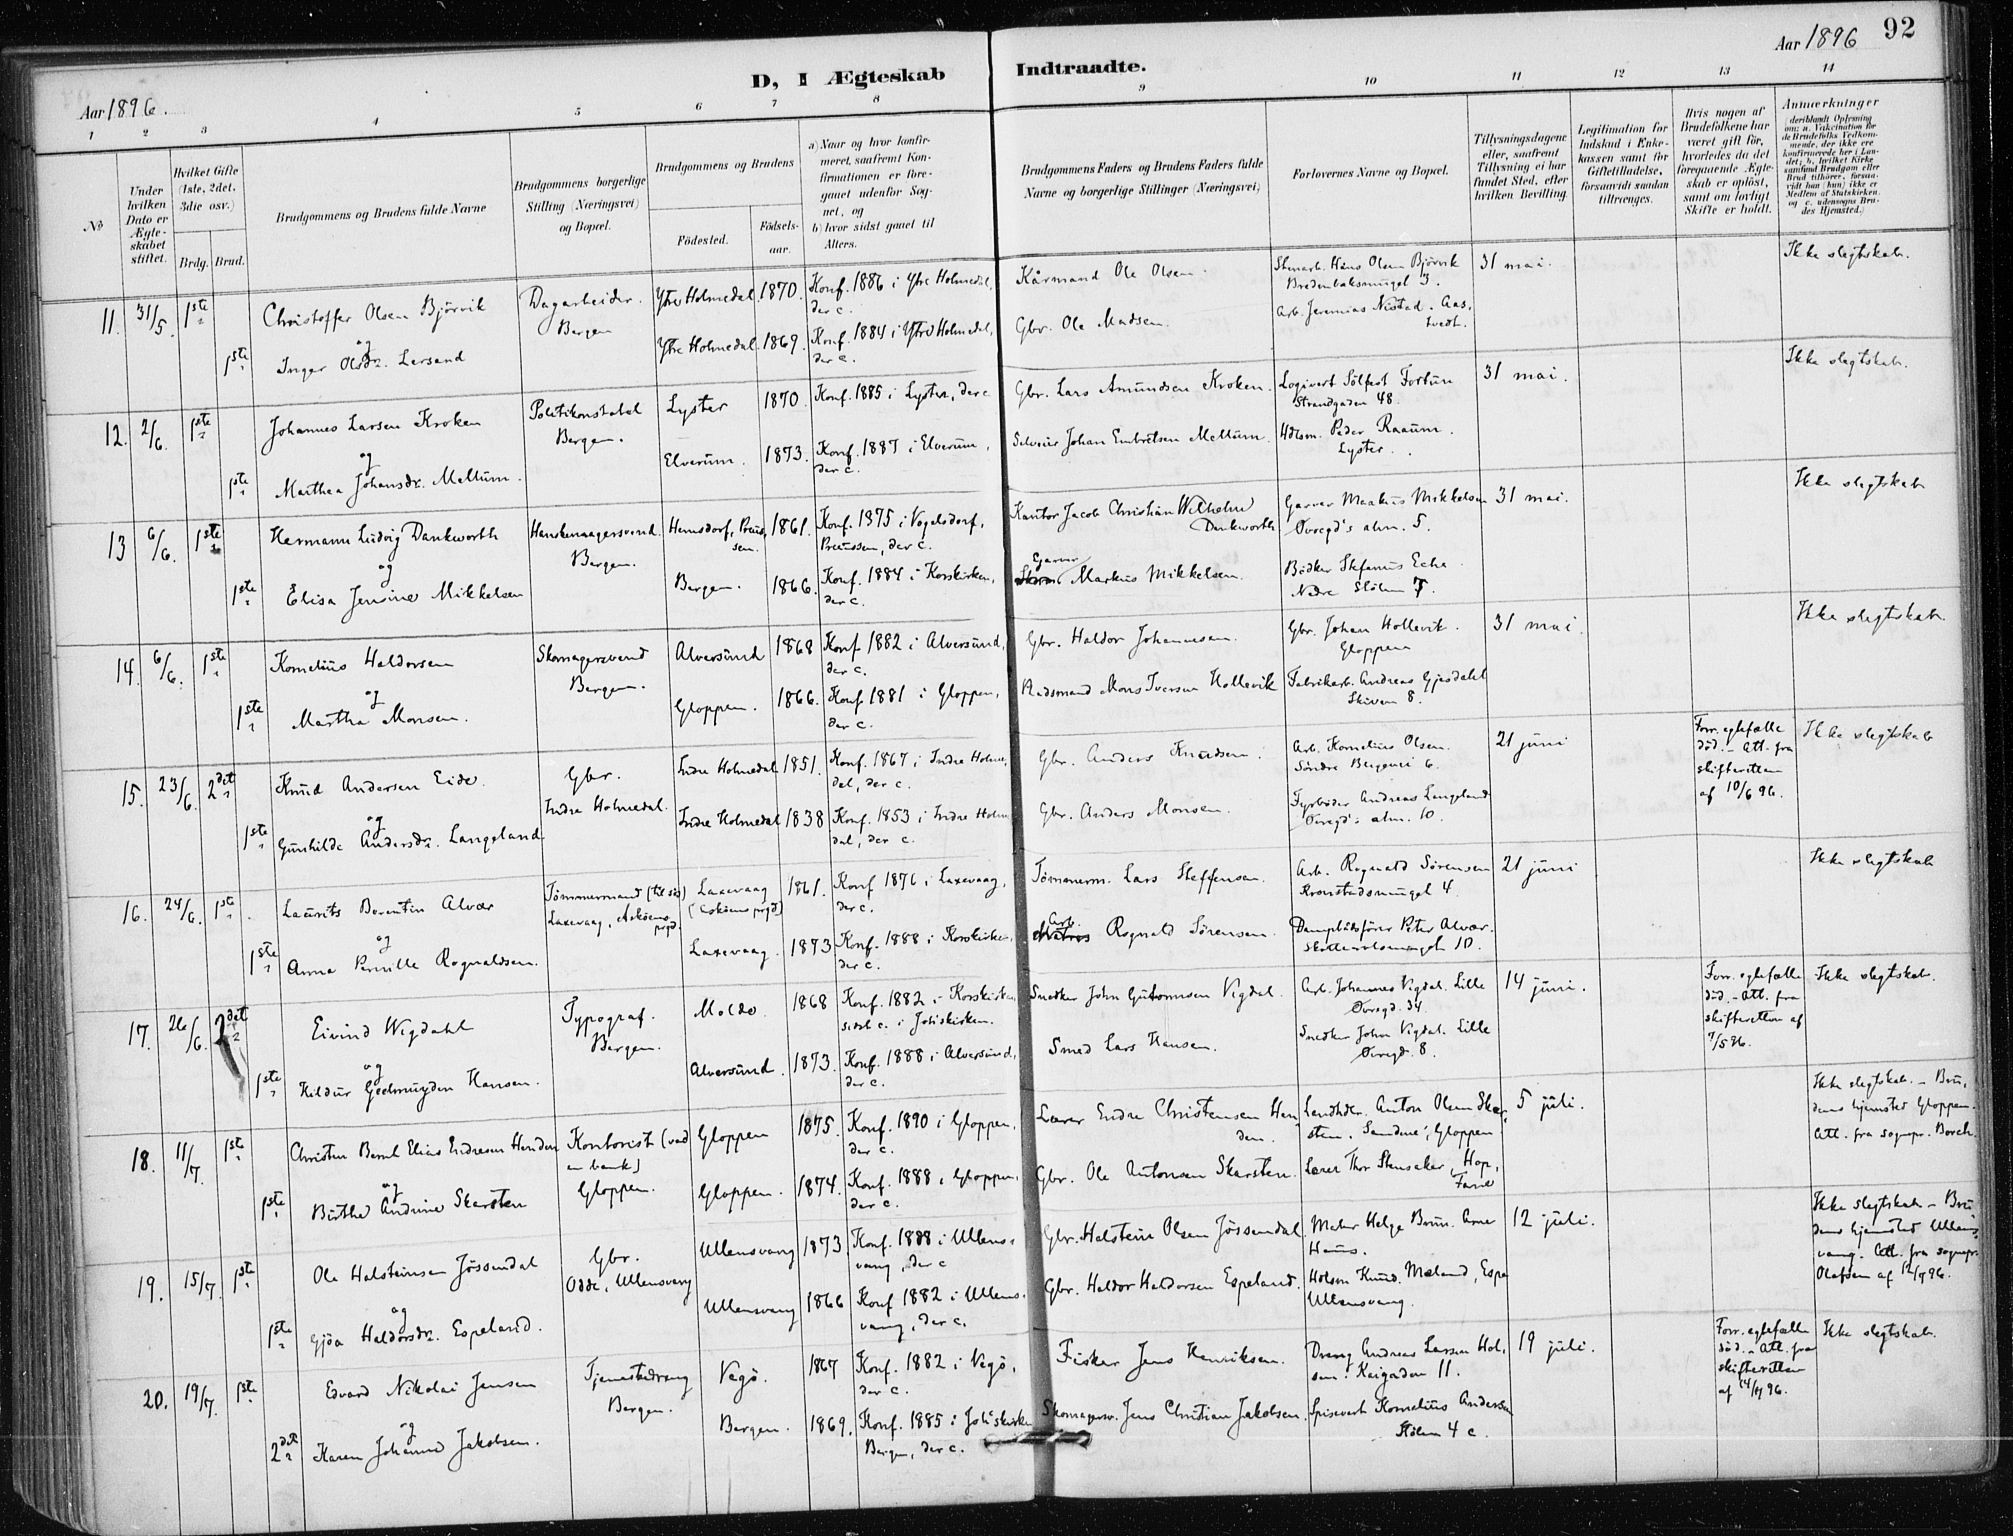 Aar 1896. D, I Ægteskab Indtraadte. Aar 1896 92
1 2 3 4 5 6 7 8 9 10 11 12 13 14
No
Under hvilken Dato er Ægteskabet stiftet.
Hvilket Gifte (1ste, 2det, 3die osv.)
Brdg. Brud.
Brudgommens og Brudens fulde Navne
Brudgommens borgerlige Stilling (Næringsvei) og Bopæl.
Brudgommens og Brudens
Fødested. Fødselsaar.
a) Naar og hvor konfirmeret, saafremt Konfirmationen er foregaaet udenfor Sognet, og
b) hvor sidst gaaet til Alters.
Brudgommens Faders og Brudens Faders fulde Navne og borgerlige Stillinger (Næringsvei)
Forlovernes Navne og Bopæl.
Tillysningsdagene eller, saafremt Tillysning ei har fundet Sted, efter hvilken Bevilling.
Legitimation for Indskud i Enkekassen samt for Giftetilladelse, forsaavidt saadan tiltrænges.
Hvis nogen af Brudefolkene har været gift før, hvorledes da det foregaaende Ægteskab er opløst, samt om lovligt Skifte er holdt.
Anmærkninger (deriblandt Oplysning om: a. Vakcination for de Brudefolks Vedkommende, der ikke ere konfirmerede her i Landet; b. hvilket Kirkesamfund Brudgom eller Brud tilhører, forsaavidt han (hun) ikke er Medlem af Statskirken, og c. udensogns Brudes Hjemsted.)
11. 31/5. 1ste Christoffer Olsen Bjørvik Dagarbeider. Bergen Ytre Holmedal 1870. Konf. 1886 i Ytre Holmedal, der c. Kårmand Ole Olsen. Stenarb. Hans Olsen Bjørvik Bredenbaksmuget 3. 31 mai. Ikke slegtskab.
og
1ste Inger Olsdr. Lersand Ytre Holmedal 1869. Konf. 1884 i Ytre Holmedal, der c. Gbr. Ole Madsen. Arb. Jeremias Nistad. Aastvedt.
12. 2/6. 1ste Johannes Larsen Kroken Politikonstabel Bergen. Lyster 1870. Konf. 1885 i Lyster, der c. Gbr. Lars Amundsen Kroken. Logivert Sølfest Fortun Strandgaden 48. 31 mai. Ikke slegtskab.
og
1ste Marthea Johansdr. Mellum. Elverum. 1873. Konf. 1887 i Elverum, der c. Selveier Johan Embretsen Mellum. Hdlsm. Peder Raaum. Lyster.
13 6/6. 1ste Hermann Ludvig Dankworth Hanskemagersvend. Bergen. Hemsdorf, Preussen. 1861. Konf. 1875 i Vogelsdorf, Preussen, der c. Kantor Jacob Christian Wilhelm Dankworth Garver Markus Mikkelsen Øvregd's alm. 5. 31 mai. Ikke slegtskab
og
1ste Elisa Jensine Mikkelsen Bergen. 1866. Konf. 1884 i Korskirken, der c. Garver Markus Mikkelsen. Bødker Stefanus Eche Nedre Stølen 7.
14. 6/6. 1ste Kornelius Haldorsen Skomagersvend Bergen. Alversund 1868 Konf 1882 i Alversund, der c. Gbr. Haldor Johannesen. Gbr. Johan Hollevik. Gloppen 31 mai. Ikke slegtskab.
og
1ste Martha Monsen. Gloppen. 1866. Konf. 1881 i Gloppen, der c. Madsmand Mons Iversen Hollevik Fabrikarb. Andreas Gjesdahl Skiven 8.
15. 23/6. 2det Knud Andersen Eide. Gbr. Indre Holmedal. Indre Holmedal 1851. Konf. 1867 i Indre Holmedal, der c. Gbr. Anders Knudsen. Arb. Kornelius Olsen. Søndre Bergenei 6. 21 juni Forr. egtefælle død. - Att. fra skifteretten af 10/6 96. Ikke slegtskab
og
1ste Gunhilde Andersdr. Langeland Indre Holmedal 1838 Konf. 1853 i Indre Holmedal, der c. Gbr. Anders Monsen. Fyrbøder Andreas Langeland Øvregd's alm. 10.
16. 24/6. 1ste Laurits Berentin Alvær Tømmermand (til sø) Laxevaag, Askøens prgd. Laxevaag (Askøens prgd) 1861. Konf 1876 i Laxevaag, der c. Tømmerm. Lars Steffensen. Arb. Rognald Sørensen Kronstadsmuget 4. 21 juni Ikke slegtskab
og
1ste Anna Pernille Rognaldsen. Laxevaag. 1873 Konf. 1888 i Korskirken, der c. Arb. Rognald Sørensen. Dampbådsfører Peter Alvær. 10.
17. 26/6. 2det Eivind Wigdahl Typograf. Bergen. Molde. 1868 Konf. 1882 i Korskirken sidst c. i Johskirken. Snedker John Guttormsen Vigdal. Arb. Johannes Vigdal. Lille Øvregd. 34. 14 juni. Forr. egtefælle død. - Att. fra skifteretten af 7/5 96. Ikke slegtskab.
og
1ste Hildur Geelmuyden Hansen. Alversund. 1873. Konf. 1888 i Alversund, der c. Smed Lars Hansen. Snedker John Vigdal. Lille Øvregd. 8.
18. 11/7. 1ste Christen Bernt Elias Endresen Henden Kontorist (ved en bank) Gloppen. Gloppen 1875. Konf. 1890 i Gloppen, der c. Lærer Endre Christensen Henden. Landhdlr. Anton Olsen Skarsten. Sandene, Gloppen 5 juli. Ikke slegtskab. - Brudens hjemsted Gloppen. Att. fra sognepr. Borch.
og
1ste Birthe Andrine Skarsten Gloppen. 1874. Konf. 1888 i Gloppen, der c. Gbr. Ole Antonsen Skarsten. Lærer Thor Stensaker, Hop, Fane
19. 15/7. 1ste Ole Halsteinsen Jøssendal Gbr. Odde, Ullensvang Ullensvang 1873 Konf. 1888 i Ullensvang, der c Gbr. Halstein Olsen Jøssendal. Maler Helge Brun. Arne Haus. 12 juli. Ikke slegtskab - Brudens hjemsted Ullensvang. Att. fra sognepr. Olafsen af 12/7 96.
og
1ste Gjøa Haldorsdr. Espeland. Ullensvang 1866 Konf 1882 i Ullensvang, der c. Gbr. Haldor Haldorsen Espeland. Hdlsm Knud Mæland, Espe Ullensvang.
20. 19/7. 1ste Edvard Nikolai Jensen Tjenestedreng Bergen. Vegø. 1867 Konf. 1882 i Vegø, der c. Fisker Jens Henriksen. Dreng Andreas Larsen Holsen. Kaigaden 11. 19 juli. Forr. egtefælle død. - Att. fra skifteretten af 14/7 96. Ikke slegtskab.
og
2det Karen Johanne Jakobsen. Bergen. 1869. Konf. 1885 i Johskirken Bergen, der c. Skomagersv. Jens Christian Jakobsen. Spisevert Kornelius Andersen Stølen 4 c.